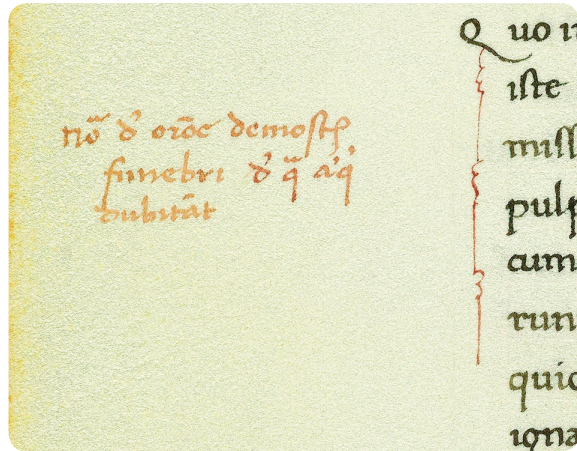 nō̃ đ orōe demosth
funebri đ q̃ aq̓
dubitāt
Quo
iste
miss
pulp
cum
run
quic
igna